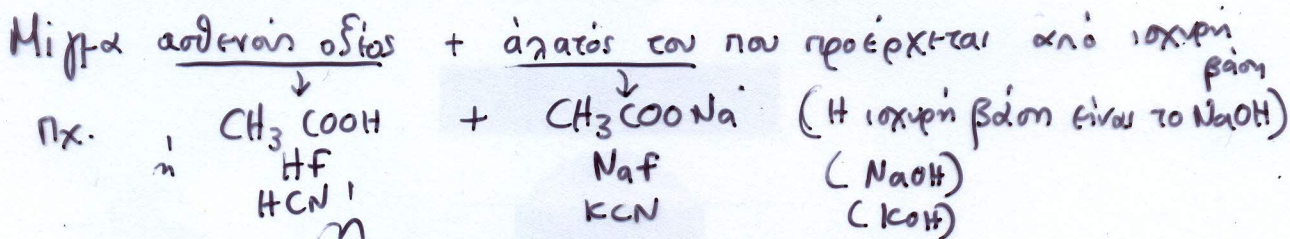 Μίγμα ασθενούς οξέος + άλατός του που προέρχεται από ισχυρή βάση
πχ. ή CH3 COOH + CH3COONa (Η ισχυρή βάση είναι το NaOH)
Hf Naf (NaOH)
HCN KCN (KOH)